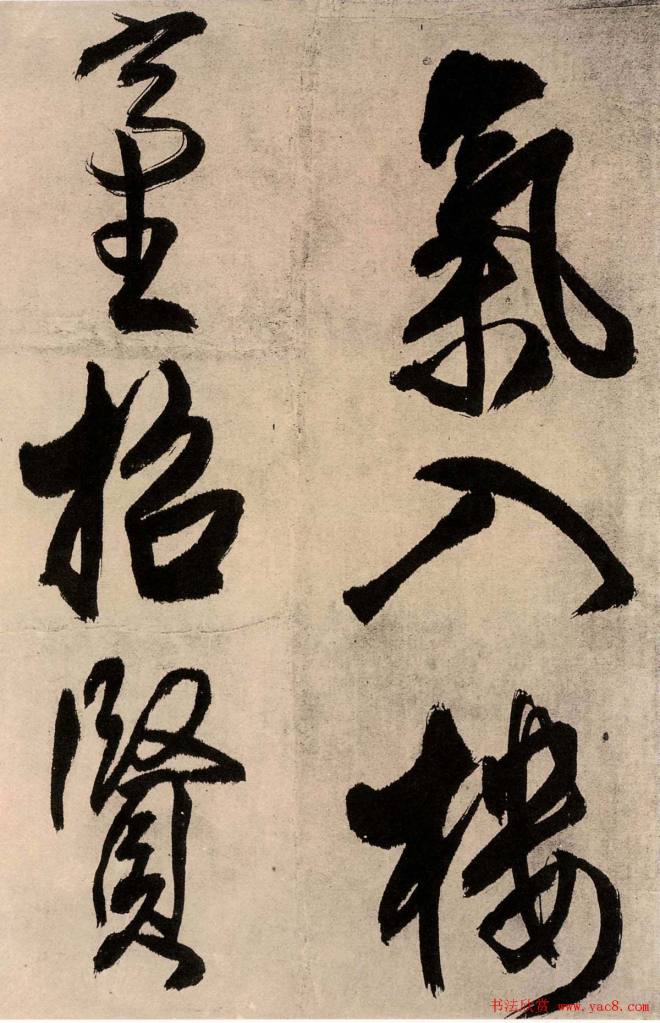 氣入樓
臺招賢
书法欣赏 www.yac8.com